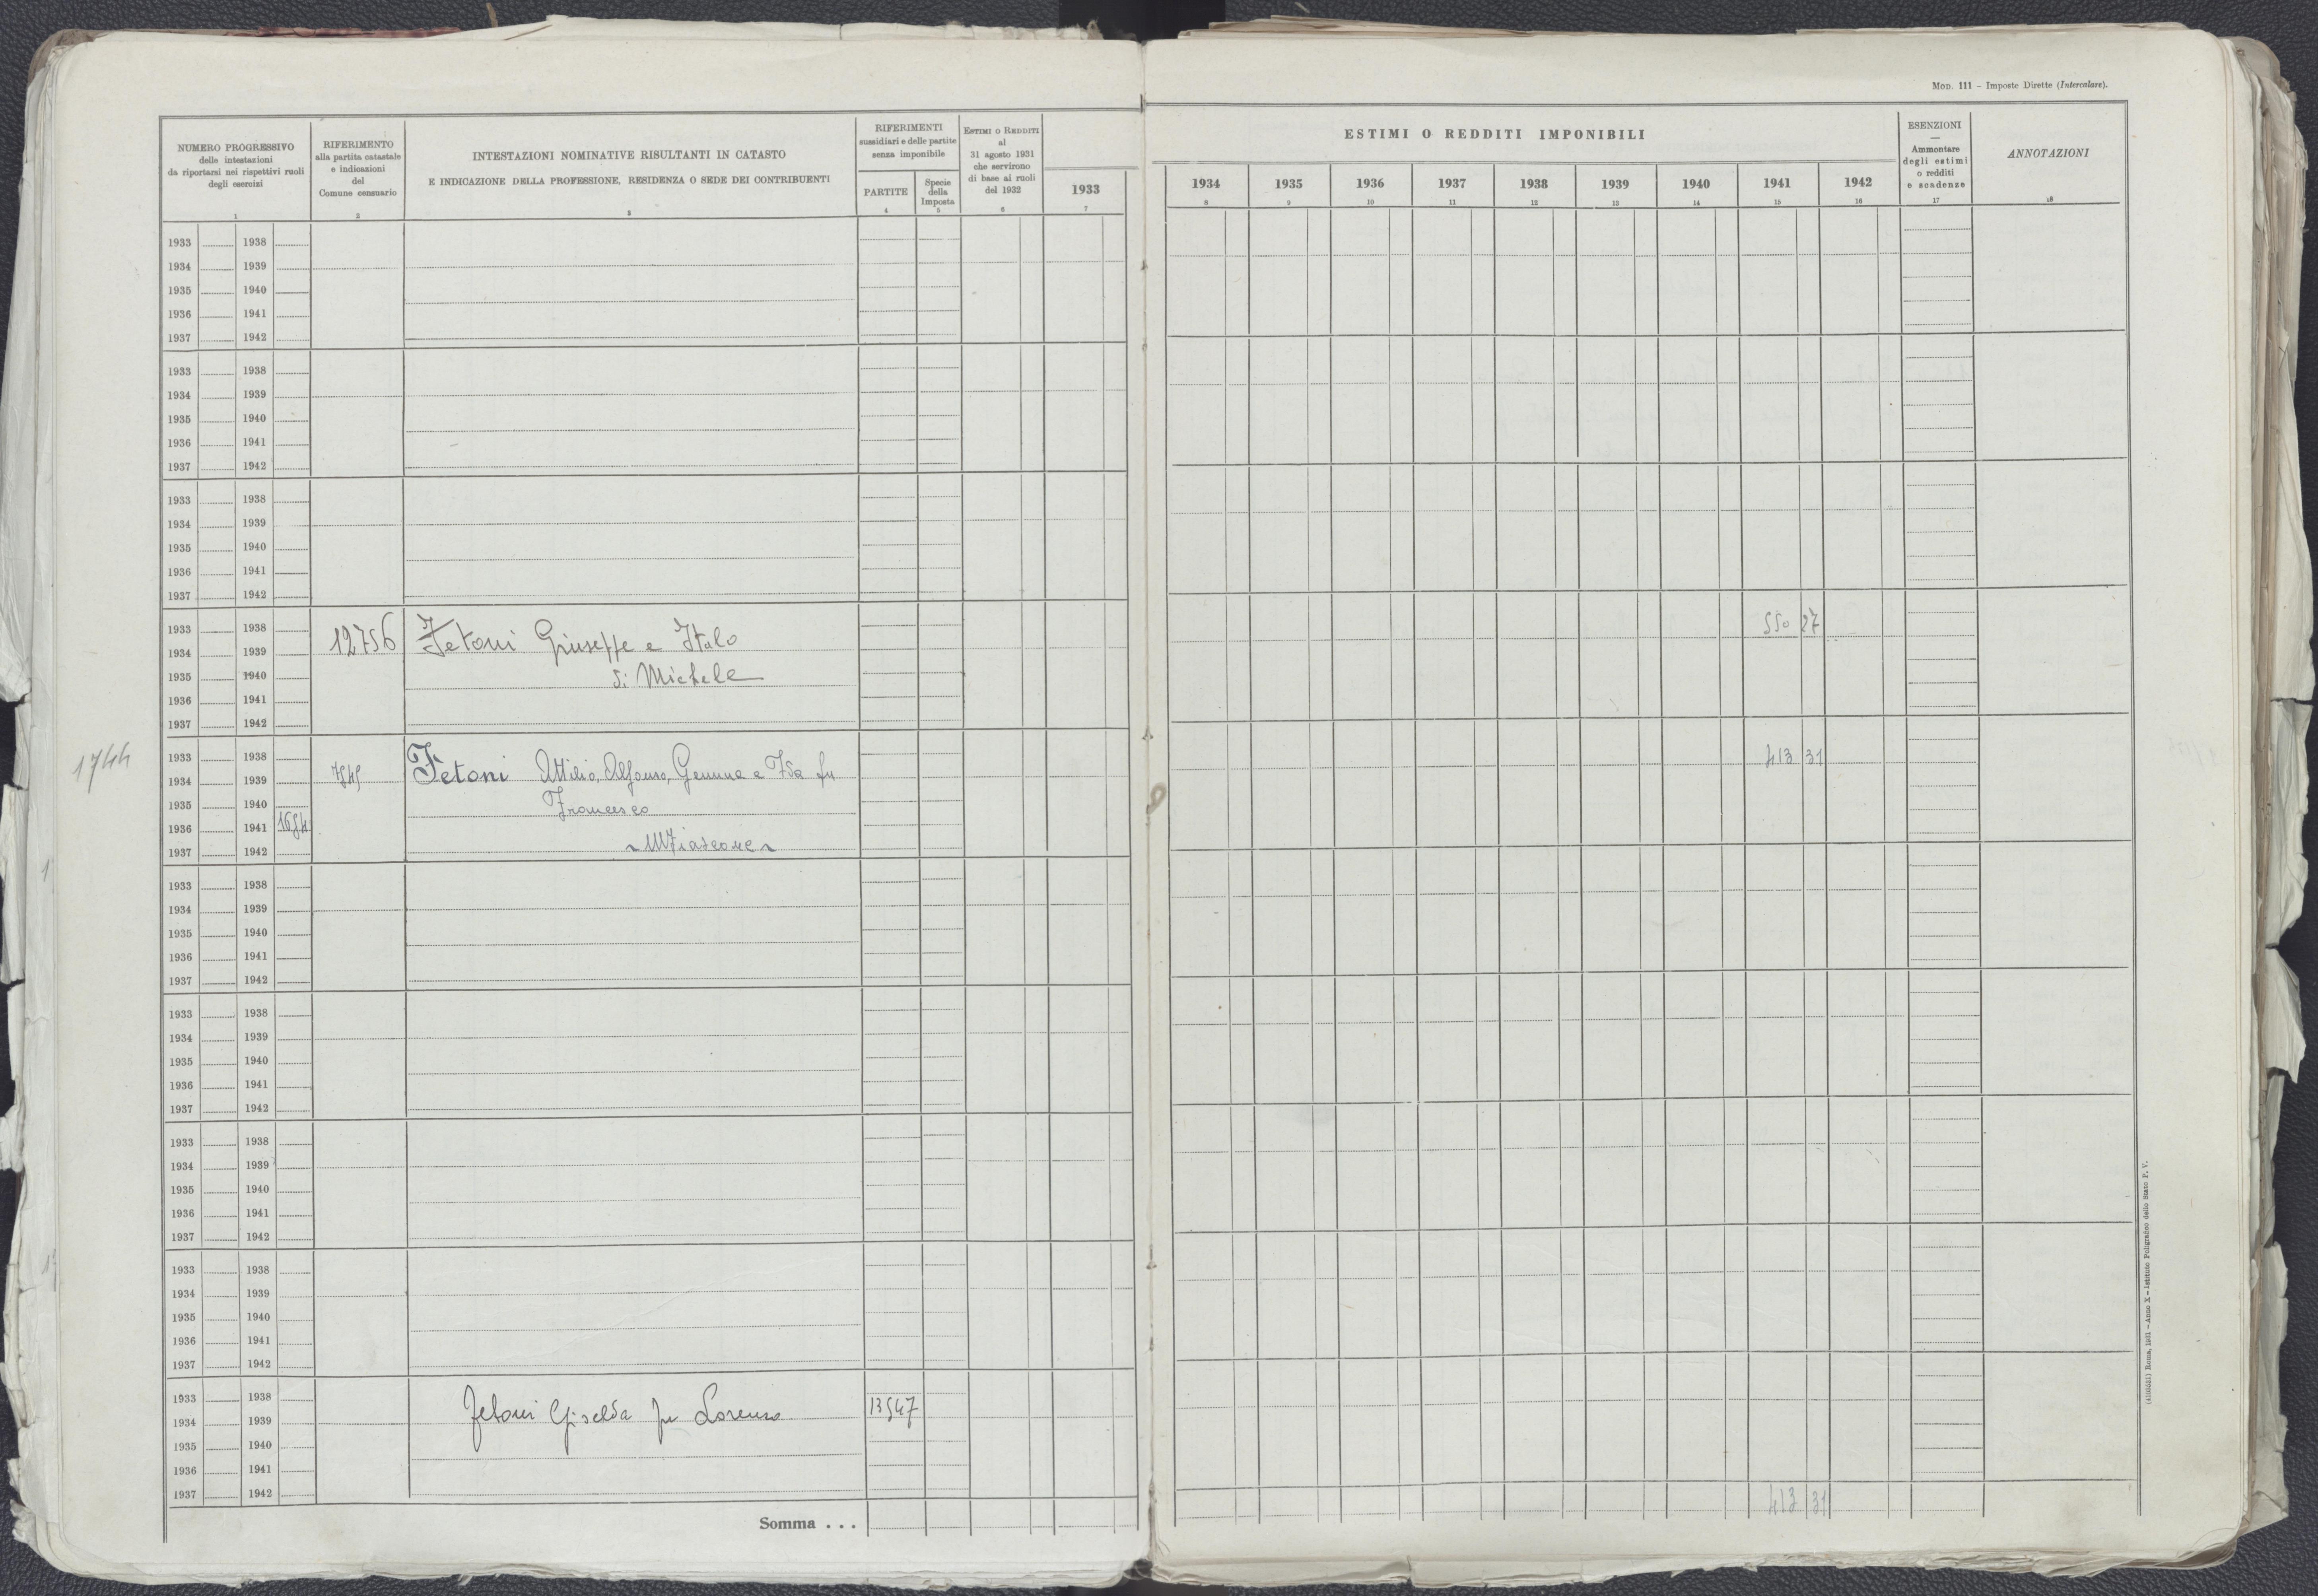 MOD. 111 – Imposte Dirette (Intercalare).
NUMERO PROGRESSIVO
delle intestazioni
da riportarsi nei rispettivi ruoli
degli esercizi
1
RIFERIMENTO
alla partita catastale
e indicazioni
del
Comune censuario
2
INTESTAZIONI NOMINATIVE RISULTANTI IN CATASTO
E INDICAZIONE DELLA PROFESSIONE, RESIDENZA O SEDE DEI CONTRIBUENTI
3
RIFERIMENTI
sussidiari e delle partite
senza imponibile
PARTITE
4
Specie
della
Imposta
5
ESTIMI O REDDITI
al
31 agosto 1931
che servirono
di base ai ruoli
del 1932
6
1933
7
ESTIMI O REDDITI IMPONIBILI
1934 1935 1936 1937 1938 1939 1940 1941 1942
8 9 10 11 12 13 14 15 16
ESENZIONI
—
Ammontare
degli estimi
o redditi
e scadenze
17
ANNOTAZIONI
18
1933 1938
1934 1939
1935 1940
1936 1941
1937 1942
1933 1938
1934 1939
1935 1940
1936 1941
1937 1942
1933 1938
1934 1939
1935 1940
1936 1941
1937 1942
1933 1938 550 27
1934 1939 12756 Fetoni Giuseppe e Italo
1935 1940 di Michele
1936 1941
1937 1942
1744
1933 1938 413 31
1934 1939 Fetoni Attilio, Alfonso, Gemma e Ida fu
1935 1940 Francesco
1936 1941
1937 1942
1933 1938
1934 1939
1935 1940
1936 1941
1937 1942
1933 1938
1934 1939
1935 1940
1936 1941
1937 1942
1933 1938
1934 1939
1935 1940
1936 1941
1937 1942
1933 1938
1934 1939
1935 1940
1936 1941
1937 1942
1933 1938
1934 1939 Fetoni Giselda fu Lorenzo 13547
1935 1940
1936 1941
1937 1942
Somma . . . 413 31
(4100531) Roma, 1931 – Anno X – Istituto Poligrafico dello Stato P. V.